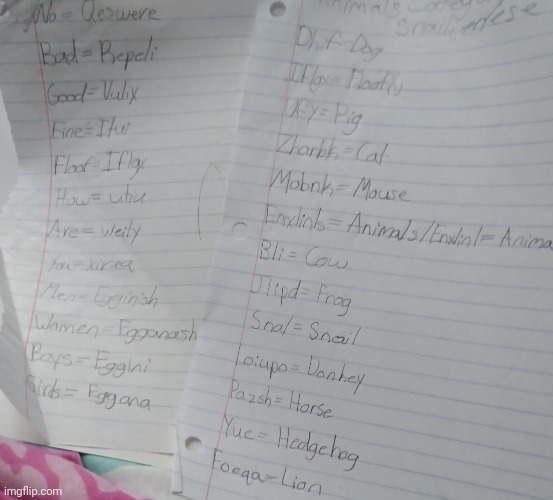 No = Qeswere
Bad = Bepeli
Good = Vulix
Fine = Ifui
Floof = Iflgx
How = utiu
Are = Weity
You = xircea
Men = Egginish
Women = Egganash
Boys = Eggini
Girls = Eggana
Animals
Snailienese
Dhif = Dog
Iflgx = Floofity
UFY = Pig
Zharbk = Cat
Mobnk = Mouse
Enxlinls = Animals/Enxlinl = Anima
Bli = Cow
Jlipd = Frog
Snal = Snail
Loiupo = Donkey
Pazsh = Horse
Yue = Hedgehog
Foega = Lion
imgflip.com